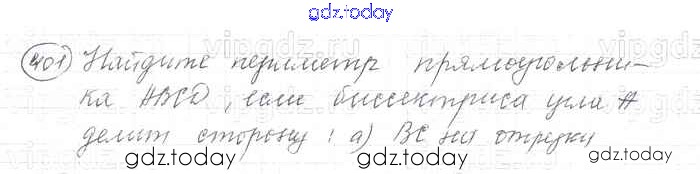 gdz.today
401 Найдите периметр прямоугольни-
ка ABCD, если биссектриса угла A
делит сторону: а) BC на отрезки
gdz.today gdz.today gdz.today